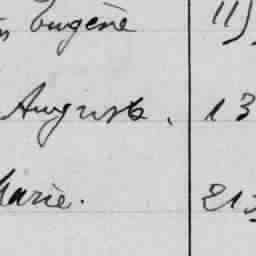 Eugène 11
Auguste. 13
Marie. 21